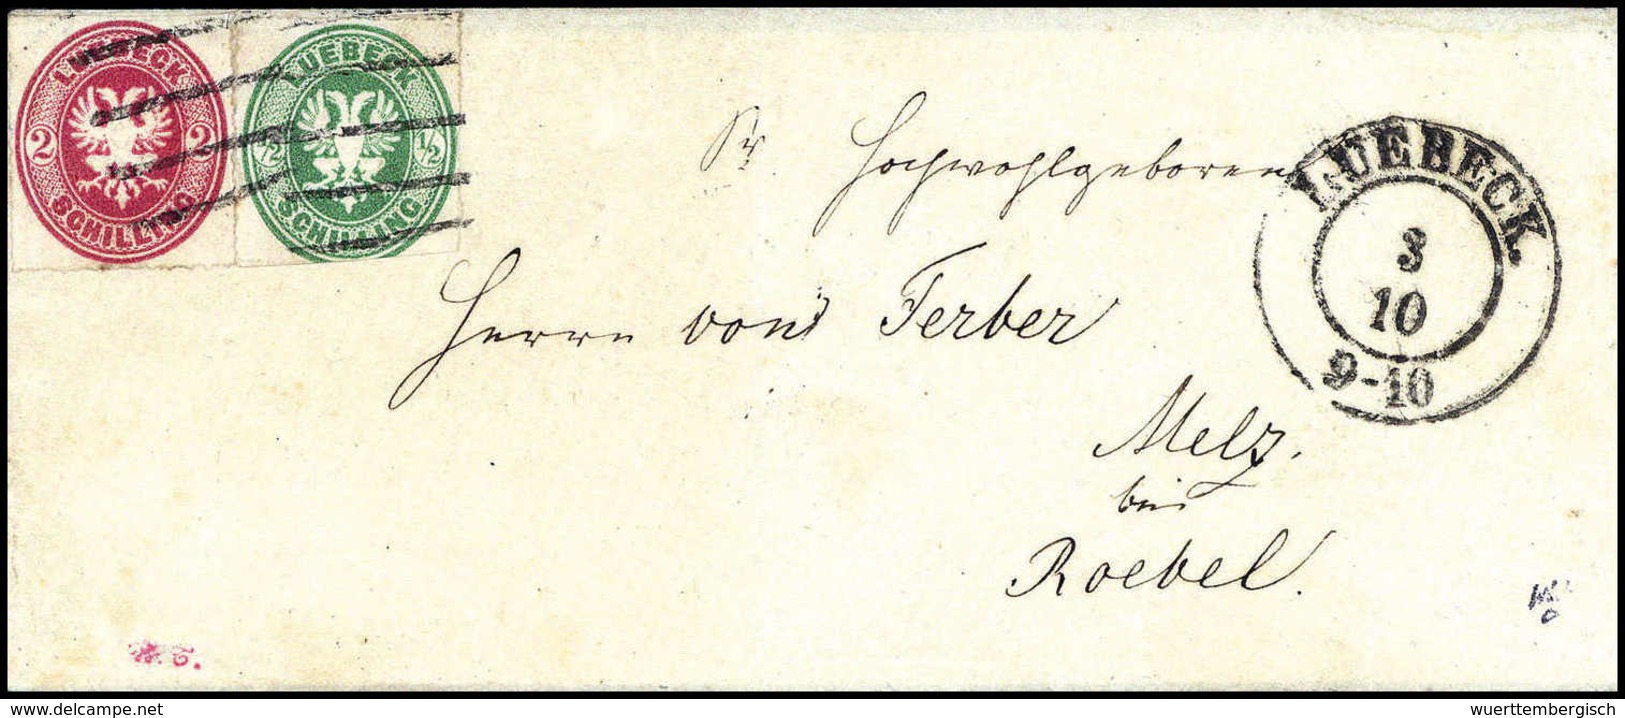 LUEBECK
2 2
SCHILLING
LUEBECK
½ ½
SCHILLING
Sr Hochwohlgeboren
LUEBECK.
3
10
9-10
Herrn von Ferber
Melz.
bei
Roebel.
delcampe.net
wuerttembergisch